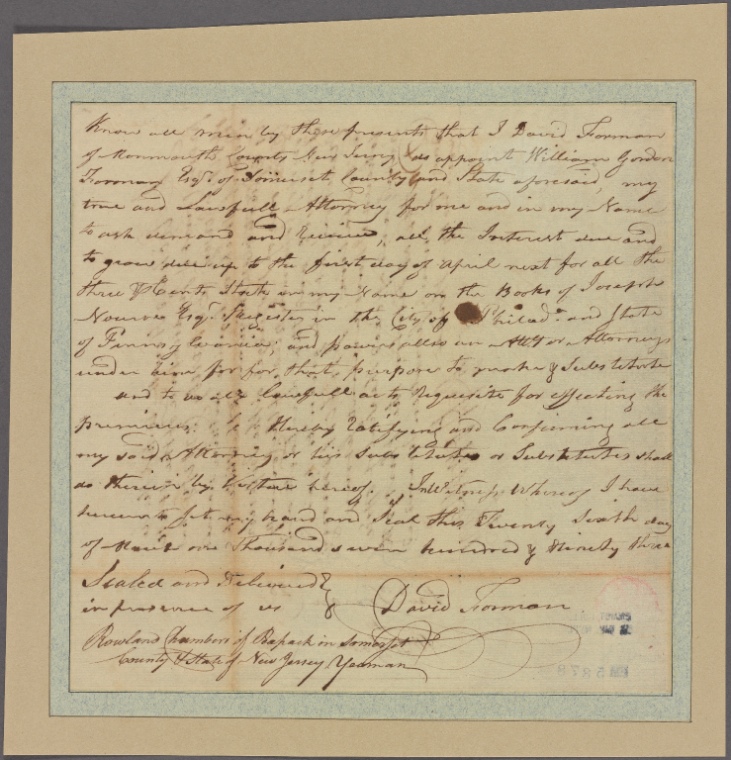 Know all men by these presents that I David Forman
of Monmouth County New Jersey does appoint William Gordon
Forman Esqr. of Somerset County and State aforesaid, my
true and Lawfull Attorney for me and in my Name
to ask demand and receive, all the Interest due and
to grow due up to the first day of April next for all the
three Pr Cents Stock in my Name on the Books of Joseph
Nourse Esqr. Register in the City of Philada. and State
of Pennsylvania; and power also an Atty or Attorneys
under him for for that, purpose to make & Substitute
and to do all lawfull acts requisite for effecting the
premises. Hereby Ratifying and Confirming all
my said Attorney or his Substitute or Substitutes shall
do therein by Virtue hereof. In Witness Whereof I have
hereunto set my hand and Seal this Twenty Sixth day
of one Thousand seven hundred & Ninety three
Sealed and Delivered
in presence of us David Forman
Rowland Chambers of Bapack in Somerset
County & State of New Jersey Yeoman